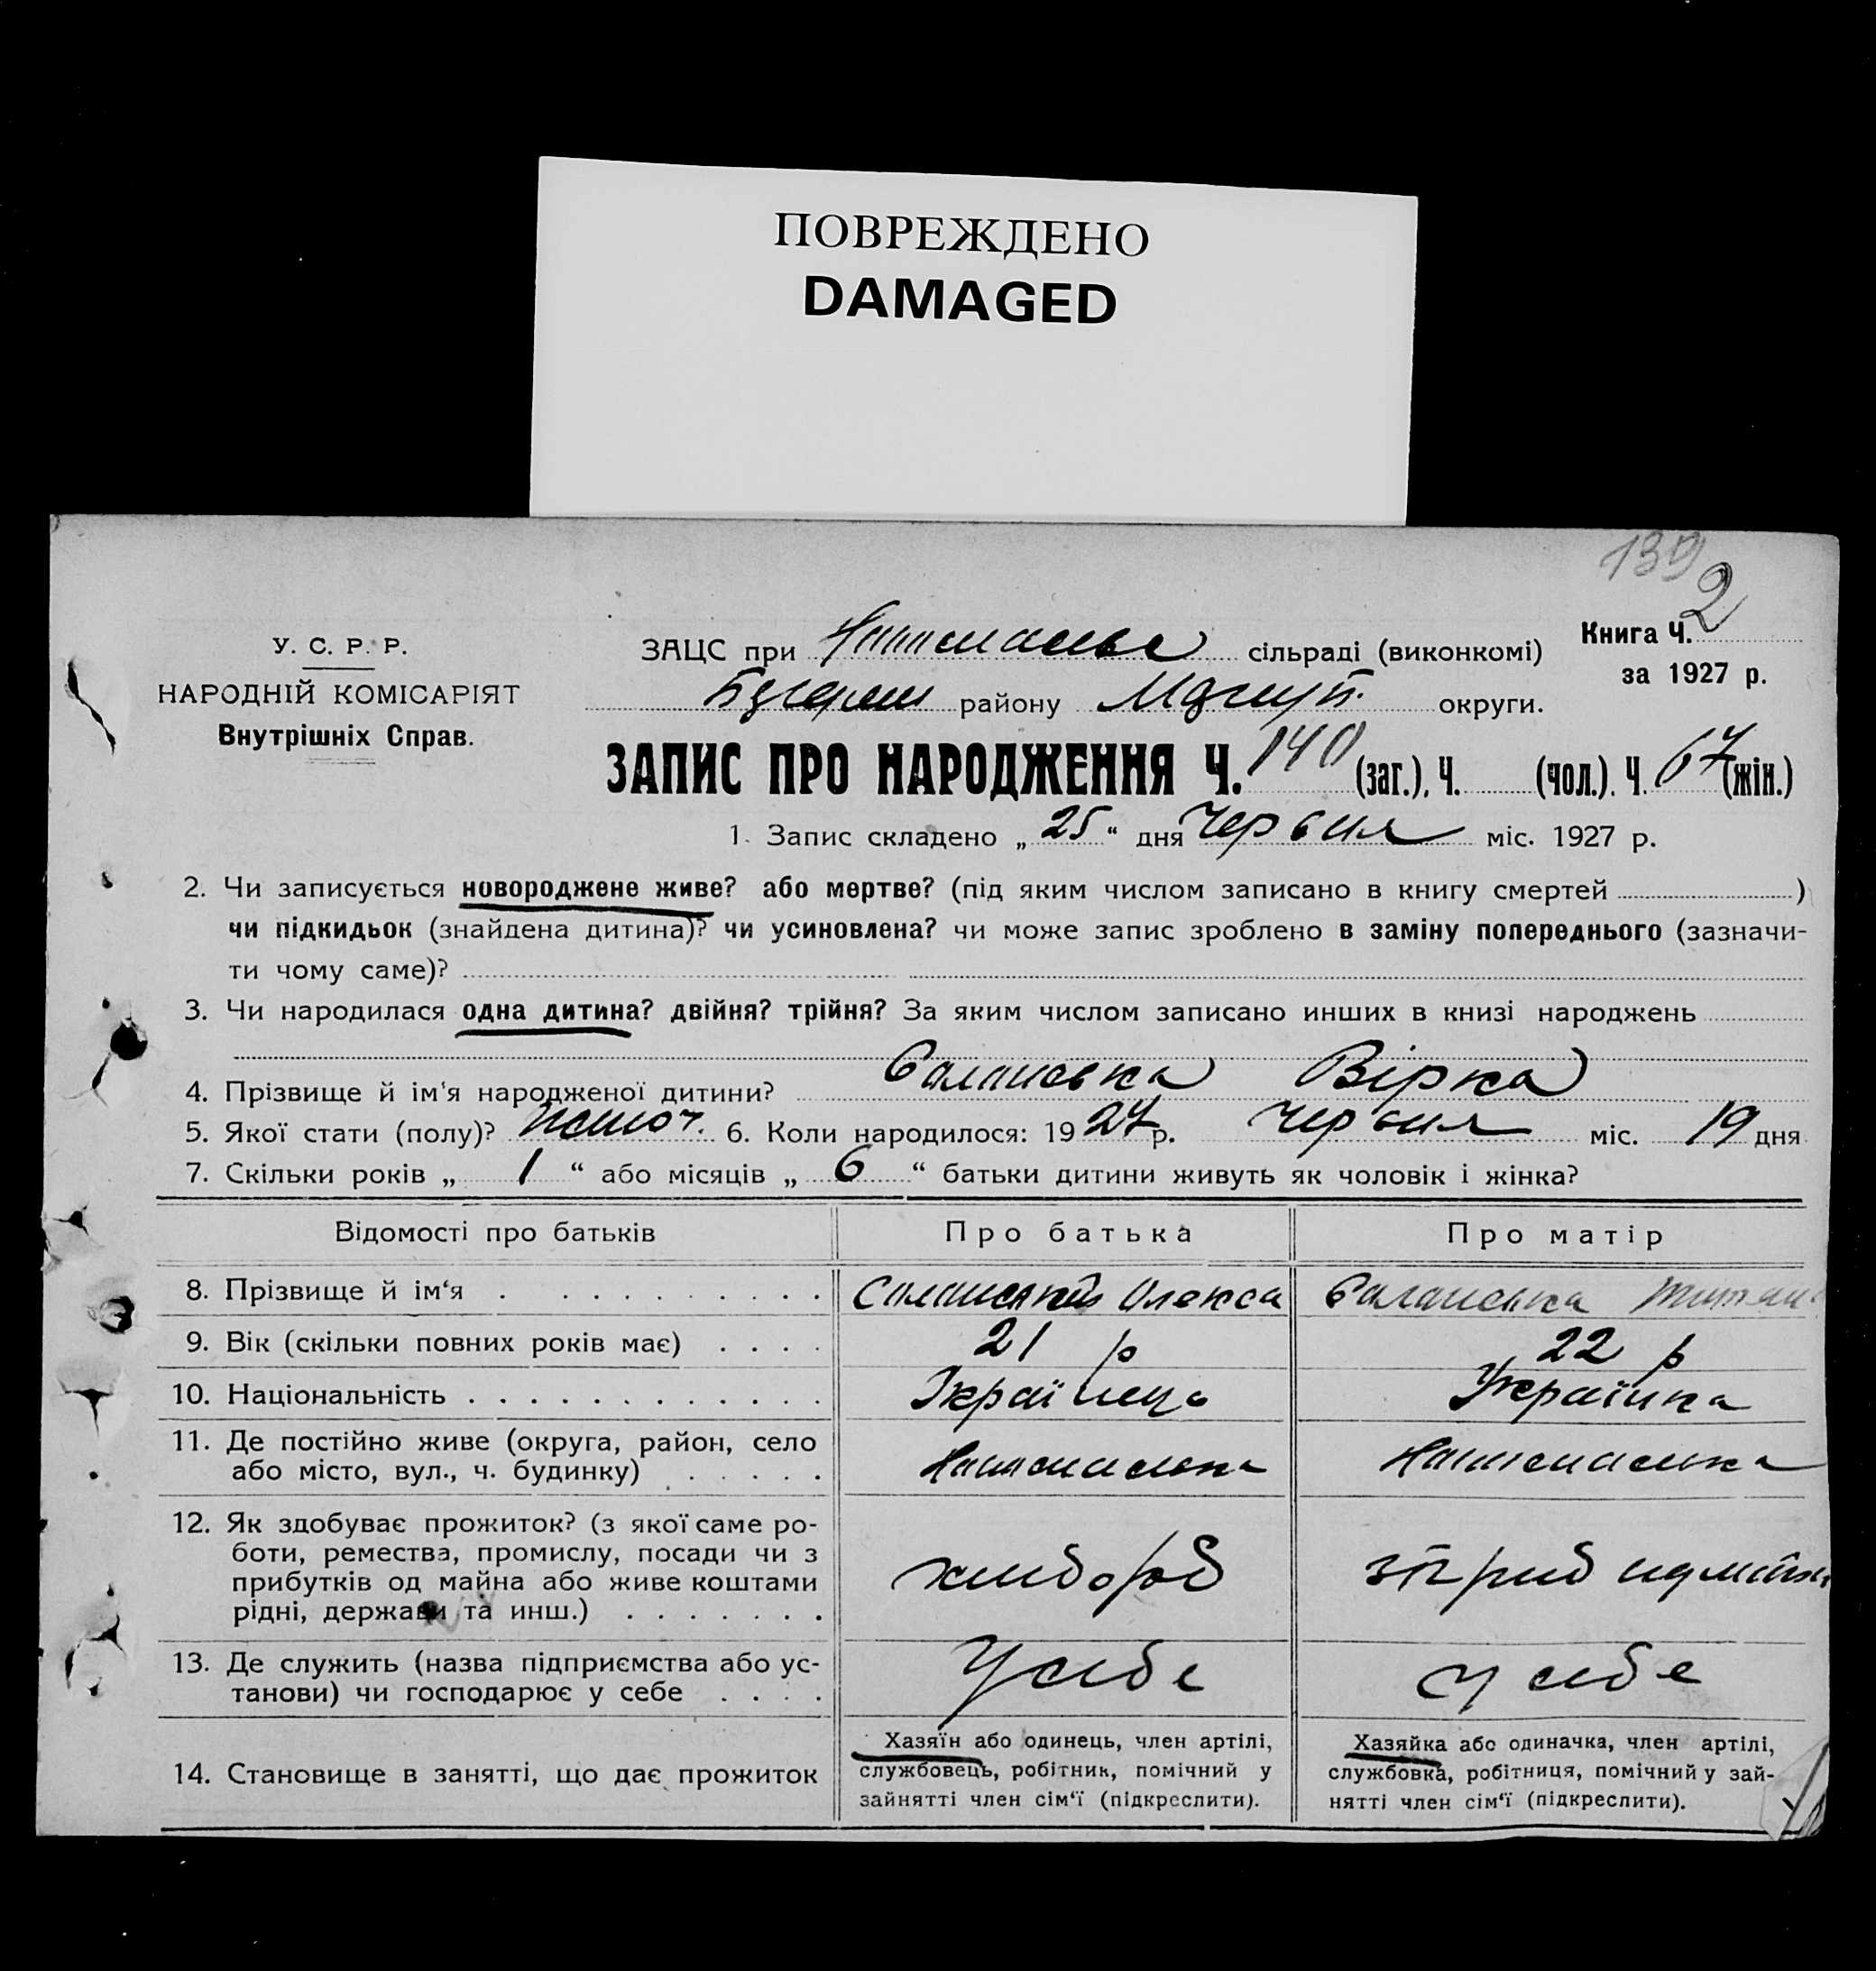 ПОВРЕЖДЕНО
DAMAGED
139
2
У. С. Р. Р.
НАРОДНІЙ КОМІСАРІЯТ
Внутрішніх Справ.
ЗАЦС при сільраді (виконкомі)
Книга Ч.
за 1927 р.
району округи.
ЗАПИС ПРО НАРОДЖЕННЯ Ч. 140 (заг.), Ч. (чол.). Ч. 67 (жін.)
1. Запис складено „ 25 “ дня Червня міс. 1927 р.
2. Чи записується новороджене живе? або мертве? (під яким числом записано в книгу смертей )
чи підкидьок (знайдена дитина)? чи усиновлена? чи може запис зроблено в заміну попереднього (зазначи-
ти чому саме)?
3. Чи народилася одна дитина? двійня? трійня? За яким числом записано инших в книзі народжень
4. Прізвище й ім'я народженої дитини? Вірка
5. Якої стати (полу)? 6. Коли народилося: 1927 р. червня міс. 19 дня
7. Скільки років „ 1 “ або місяців „ 6 “ батьки дитини живуть як чоловік і жінка?
Відомості про батьків Про батька Про матір
8. Прізвище й ім'я Олекса
9. Вік (скільки повних років має) 21 р 22 р
10. Національність Українець Українка
11. Де постійно живе (округа, район, село
або місто, вул., ч. будинку)
12. Як здобуває прожиток? (з якої саме ро-
боти, ремества, промислу, посади чи з
прибутків од майна або живе коштами
рідні, держави та инш.) хлібороб
13. Де служить (назва підприємства або ус-
танови) чи господарює у себе У себе у себе
14. Становище в занятті, що дає прожиток
Хазяїн або одинець, член артілі,
службовець, робітник, помічний у
зайнятті член сім'ї (підкреслити).
Хазяйка або одиначка, член артілі,
службовка, робітниця, помічний у зай-
нятті член сім'ї (підкреслити).